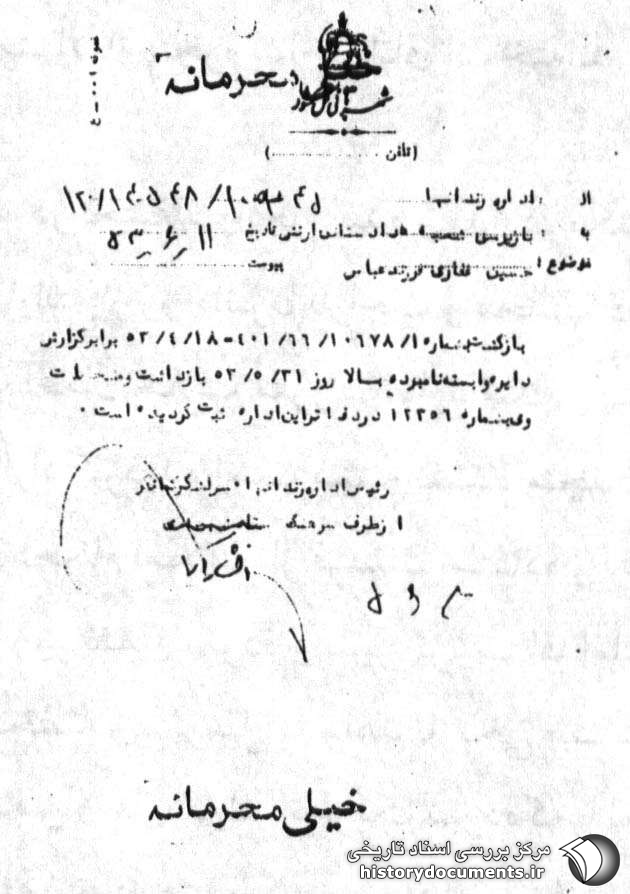 محرمانه
شهربانی کشور
(تلفن ............)
از : اداره زندانها
به : بازپرس شعبه ۵ دادستانی ارتش تاریخ ۱۱ ر۶ ر۵۳
موضوع : حسین غفاری فرزند عباس پیوست
بازگشت بشماره ۴۰۱/۶۶/۱۰۶۷۸/۱-۵۳/۴/۱۸ برابر گزارش
دایره وابسته نامبرده بالا روز ۵۳/۵/۳۱ بازداشت و مشخصات
وی بشماره ۱۲۳۵۶ در دفاتر این اداره ثبت گردیده است .
رئیس اداره زندانها
از طرف سرهنگ
خیلی محرمانه
مرکز بررسی اسناد تاریخی
historydocuments.ir